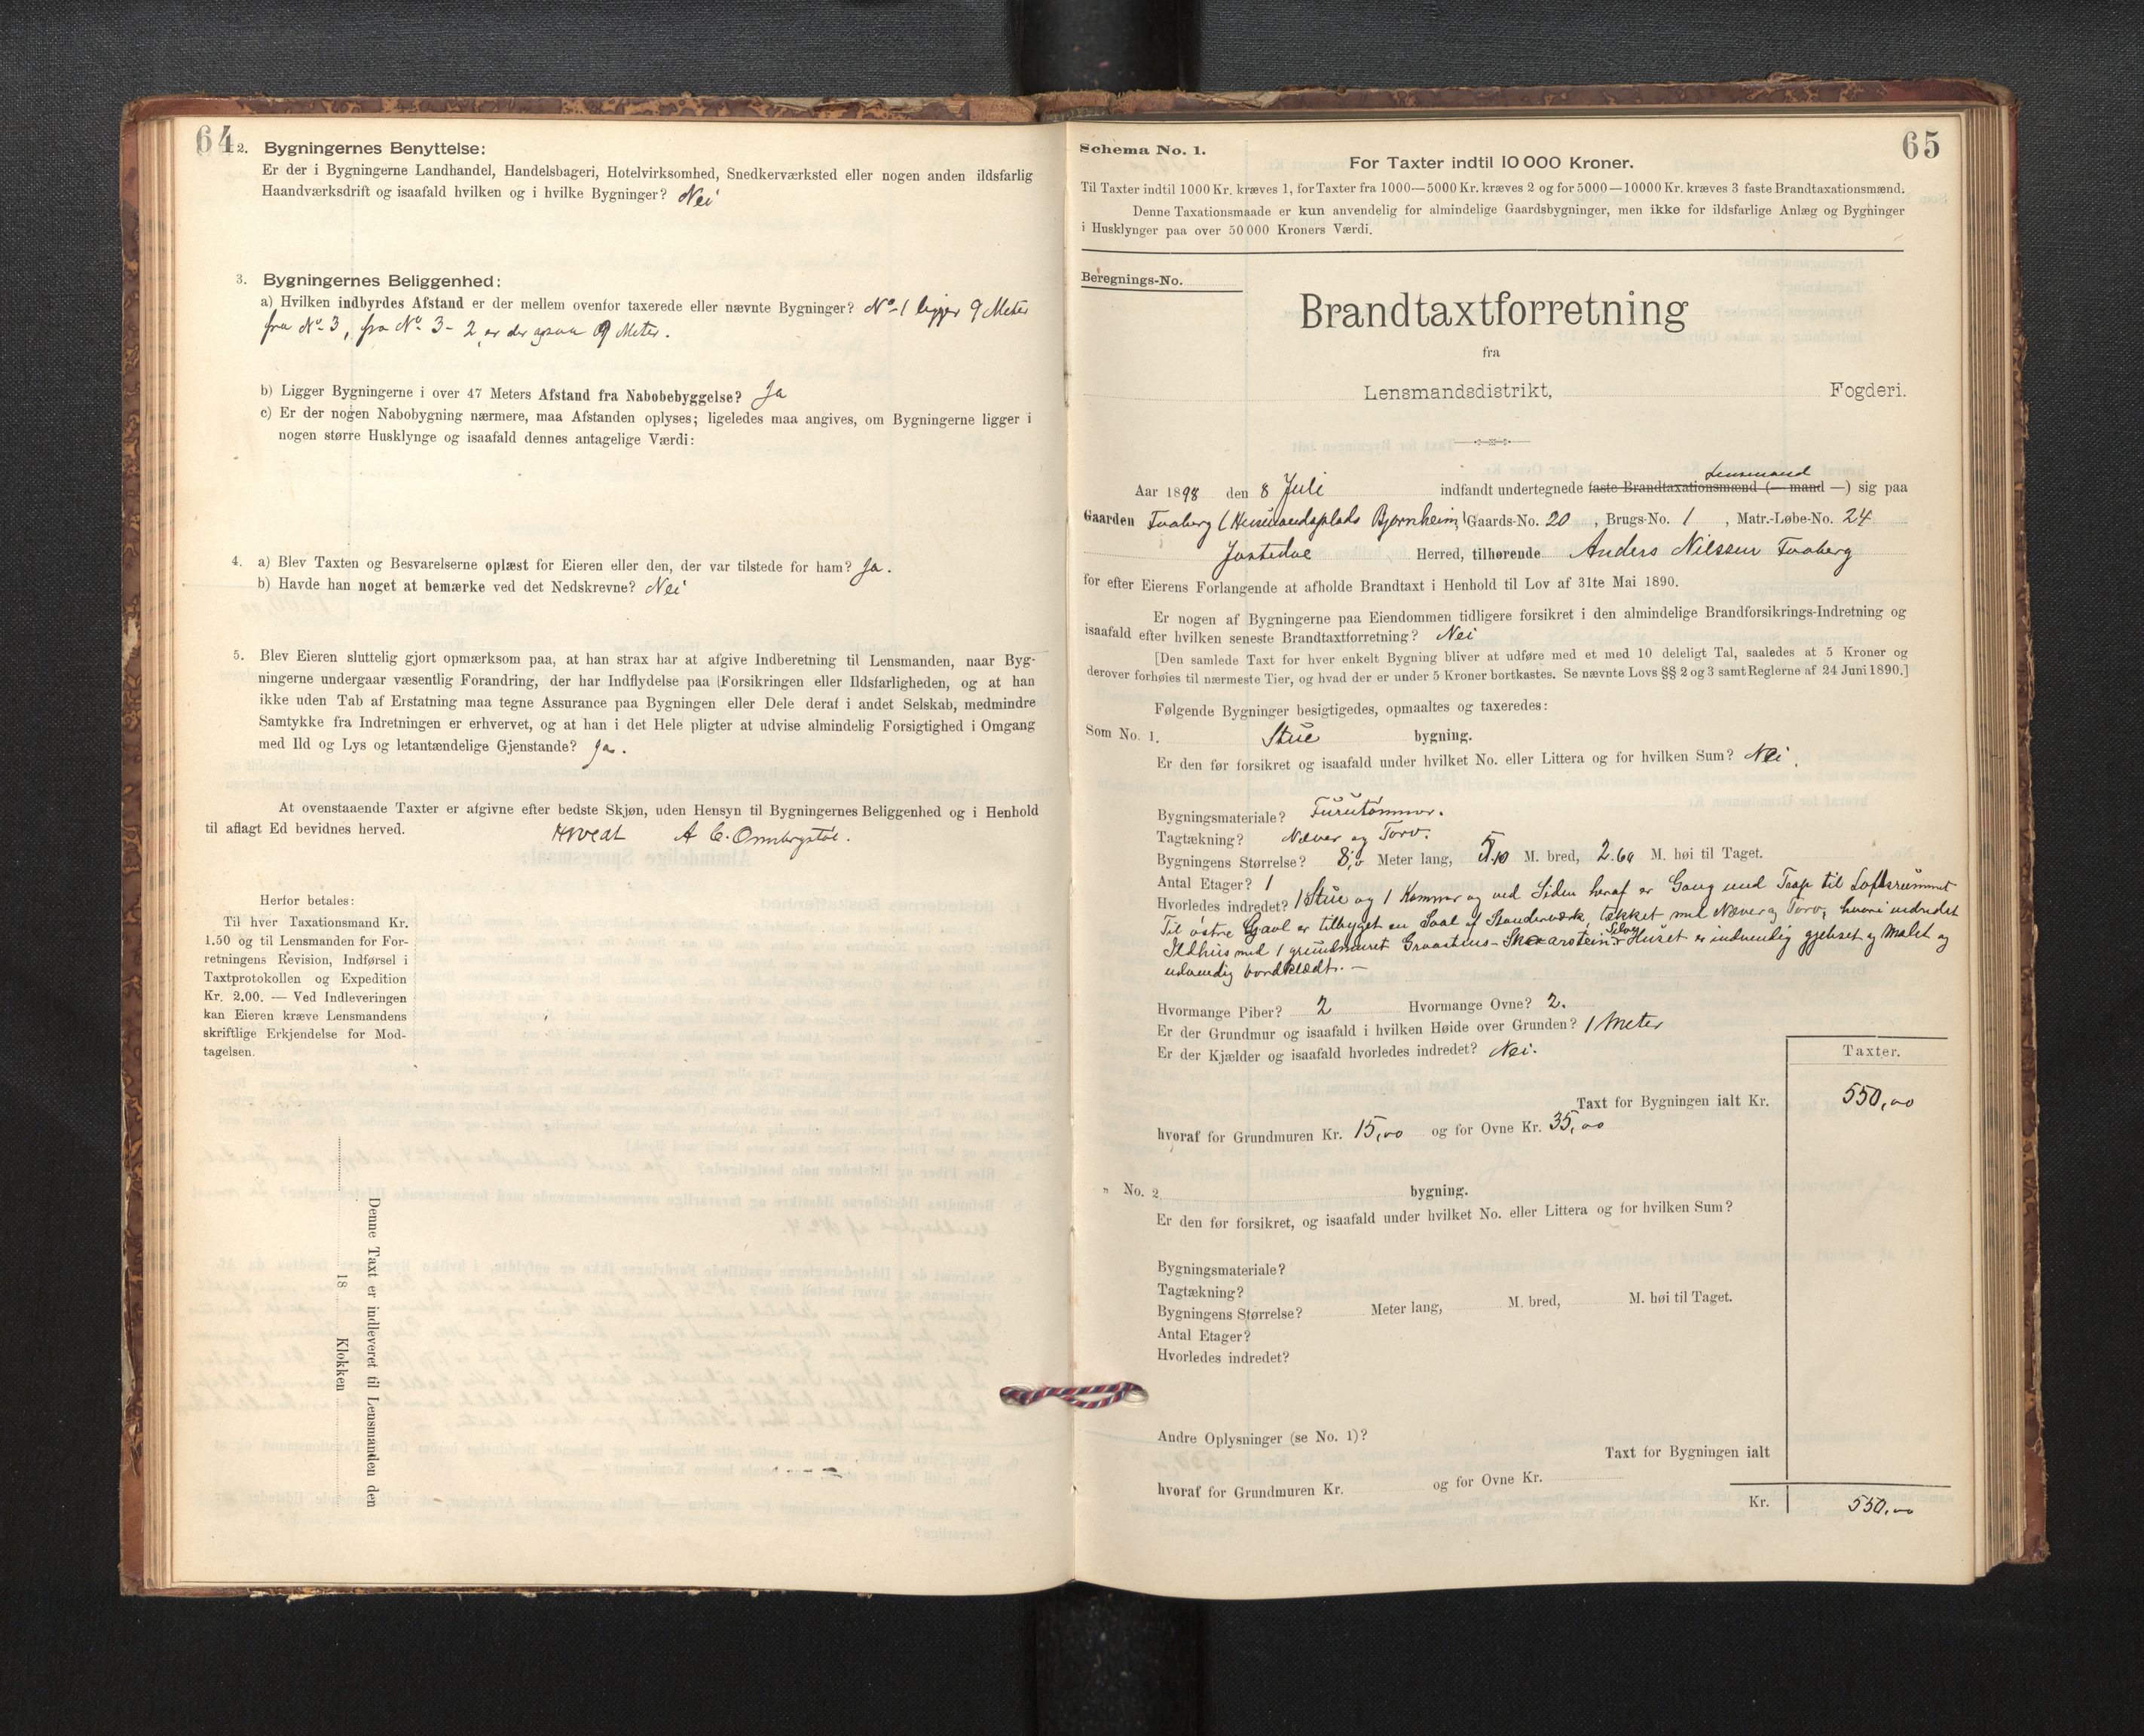 64
2. Bygningernes Benyttelse:
Er der i Bygningerne Landhandel, Handelsbageri, Hotelvirksomhed, Snedkerværksted eller nogen anden ildsfarlig
Haandværksdrift og isaafald hvilken og i hvilke Bygninger? Nei
3. Bygningernes Beliggenhed:
a) Hvilken indbyrdes Afstand er der mellem ovenfor taxerede eller nævnte Bygninger? No 1 ligger 9 Meter
fra No 3, fra No 3 - 2 er der ogsaa 9 Meter.
b) Ligger Bygningerne i over 47 Meters Afstand fra Nabobebyggelse? Ja
c) Er der nogen Nabobygning nærmere, maa Afstanden oplyses; ligeledes maa angives, om Bygningerne ligger i
nogen større Husklynge og isaafald dennes antagelige Værdi:
4. a) Blev Taxten og Besvarelserne oplæst for Eieren eller den, der var tilstede for ham? Ja.
b) Havde han noget at bemærke ved det Nedskrevne? Nei
5. Blev Eieren sluttelig gjort opmærksom paa, at han strax har at afgive Indberetning til Lensmanden, naar Byg-
ningerne undergaar væsentlig Forandring, der har Indflydelse paa Forsikringen eller Ildsfarligheden, og at han
ikke uden Tab af Erstatning maa tegne Assurance paa Bygningen eller Dele deraf i andet Selskab, medmindre
Samtykke fra Indretningen er erhvervet, og at han i det Hele pligter at udvise almindelig Forsigtighed i Omgang
med Ild og Lys og letantændelige Gjenstande? Ja.
At ovenstaaende Taxter er afgivne efter bedste Skjøn, uden Hensyn til Bygningernes Beliggenhed og i Henhold
til aflagt Ed bevidnes herved. A
Herfor betales:
Til hver Taxationsmand Kr.
1.50 og til Lensmanden for For-
retningens Revision, Indførsel i
Taxtprotokollen og Expedition
Kr. 2.00. — Ved Indleveringen
kan Eieren kræve Lensmandens
skriftlige Erkjendelse for Mod-
tagelsen.
Denne Taxt er indleveret til Lensmanden den
18 Klokken
65
Schema No. 1.
For Taxter indtil 10 000 Kroner.
Til Taxter indtil 1000 Kr. kræves 1, for Taxter fra 1000—5000 Kr. kræves 2 og for 5000—10000 Kr. kræves 3 faste Brandtaxationsmænd.
Denne Taxationsmaade er kun anvendelig for almindelige Gaardsbygninger, men ikke for ildsfarlige Anlæg og Bygninger
i Husklynger paa over 50 000 Kroners Værdi.
Beregnings-No.
Brandtaxtforretning
fra
Lensmandsdistrikt, Fogderi.
Lensmand
Aar 1898 den 8 Juli indfandt undertegnede faste Brandtaxationsmænd (— mand —) sig paa
Gaarden Faaberg (Husmandsplads Bjørnheim) Gaards-No. 20, Brugs-No. 1, Matr.-Løbe-No. 24
Jostedal Herred, tilhørende Anders Nilssen Faaberg
for efter Eierens Forlangende at afholde Brandtaxt i Henhold til Lov af 31te Mai 1890.
Er nogen af Bygningerne paa Eiendommen tidligere forsikret i den almindelige Brandforsikrings-Indretning og
isaafald efter hvilken seneste Brandtaxtforretning? Nei
[Den samlede Taxt for hver enkelt Bygning bliver at udføre med et med 10 deleligt Tal, saaledes at 5 Kroner og
derover forhøies til nærmeste Tier, og hvad der er under 5 Kroner bortkastes. Se nævnte Lovs §§ 2 og 3 samt Reglerne af 24 Juni 1890.]
Følgende Bygninger besigtigedes, opmaaltes og taxeredes:
Som No. 1. Stue bygning.
Er den før forsikret og isaafald under hvilket No. eller Littera og for hvilken Sum? Nei.
Bygningsmateriale? Furutømmer.
Tagtækning? Næver og Torv.
Bygningens Størrelse? 8,0 Meter lang, 5.10 M. bred, 2.60 M. høi til Taget.
Antal Etager? 1
Hvorledes indredet? 1 Stue og 1 Kammer og ved Siden heraf er Gang med Trap til Loftsrummet
Til østre Gavl er tilbygget en Saal af Standerværk, tækket med Næver og Torv, hvori indredet
Ildhus med 1 grundmuret Graastens-Skorsten. Huset er indvendig gjebset og Malet og
udvendig bordklædt. —
Hvormange Piber? 2 Hvormange Ovne? 2.
Er der Grundmur og isaafald i hvilken Høide over Grunden? 1 Meter
Er der Kjælder og isaafald hvorledes indredet? Nei.
Taxter.
Taxt for Bygningen ialt Kr. 550,00
hvoraf for Grundmuren Kr. 15,00 og for Ovne Kr. 35,00
„ No. 2 bygning.
Er den før forsikret, og isaafald under hvilket No. eller Littera og for hvilken Sum?
Bygningsmateriale?
Tagtækning?
Bygningens Størrelse? Meter lang, M. bred, M. høi til Taget.
Antal Etager?
Hvorledes indredet?
Andre Oplysninger (se No. 1)?
Taxt for Bygningen ialt
hvoraf for Grundmuren Kr. og for Ovne Kr.
Kr. 550,00